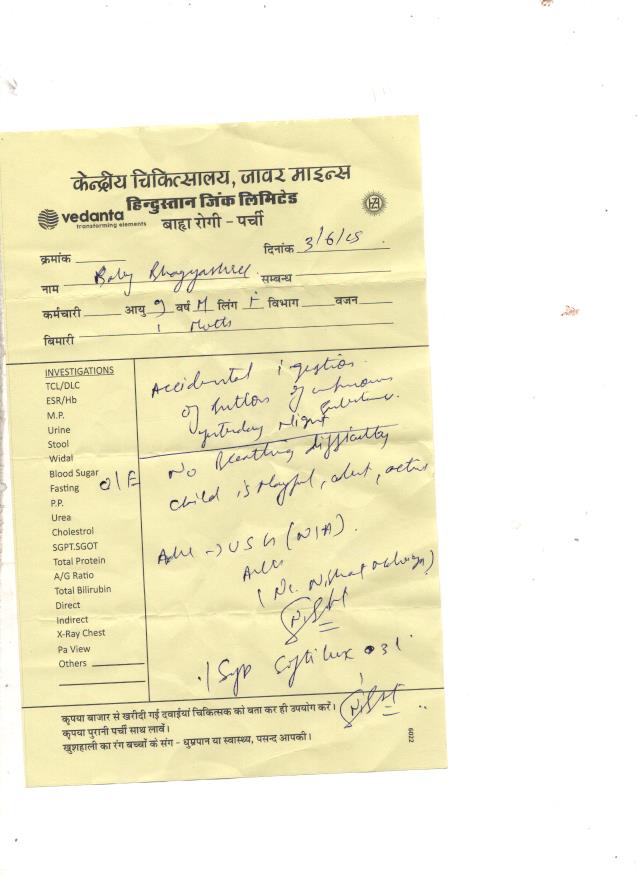 केन्द्रीय चिकित्सालय, जावर माइन्स
हिन्दुस्तान जिंक लिमिटेड
vedanta
transforming elements
बाह्य रोगी - पर्ची
क्रमांक
दिनांक 3/6/25
नाम Baby Bhagyashree सम्बन्ध
कर्मचारी आयु 9 वर्ष M लिंग F विभाग वजन
बिमारी
INVESTIGATIONS
TCL/DLC
ESR/Hb
M.P.
Urine
Stool
Widal
Blood Sugar
Fasting
P.P.
Urea
Cholestrol
SGPT.SGOT
Total Protein
A/G Ratio
Total Bilirubin
Direct
Indirect
X-Ray Chest
Pa View
Others
Accidental ingestion
of button of unknown
substance
yesterday Night
O/E
No Breathing difficulty
Child is Playful, alert, active
Adv → USG (N/A).
Syp
कृपया बाजार से खरीदी गई दवाईयां चिकित्सक को बता कर ही उपयोग करें।
कृपया पुरानी पर्ची साथ लावें।
खुशहाली का रंग बच्चों के संग - धुम्रपान या स्वास्थ्य, पसन्द आपकी।
6022